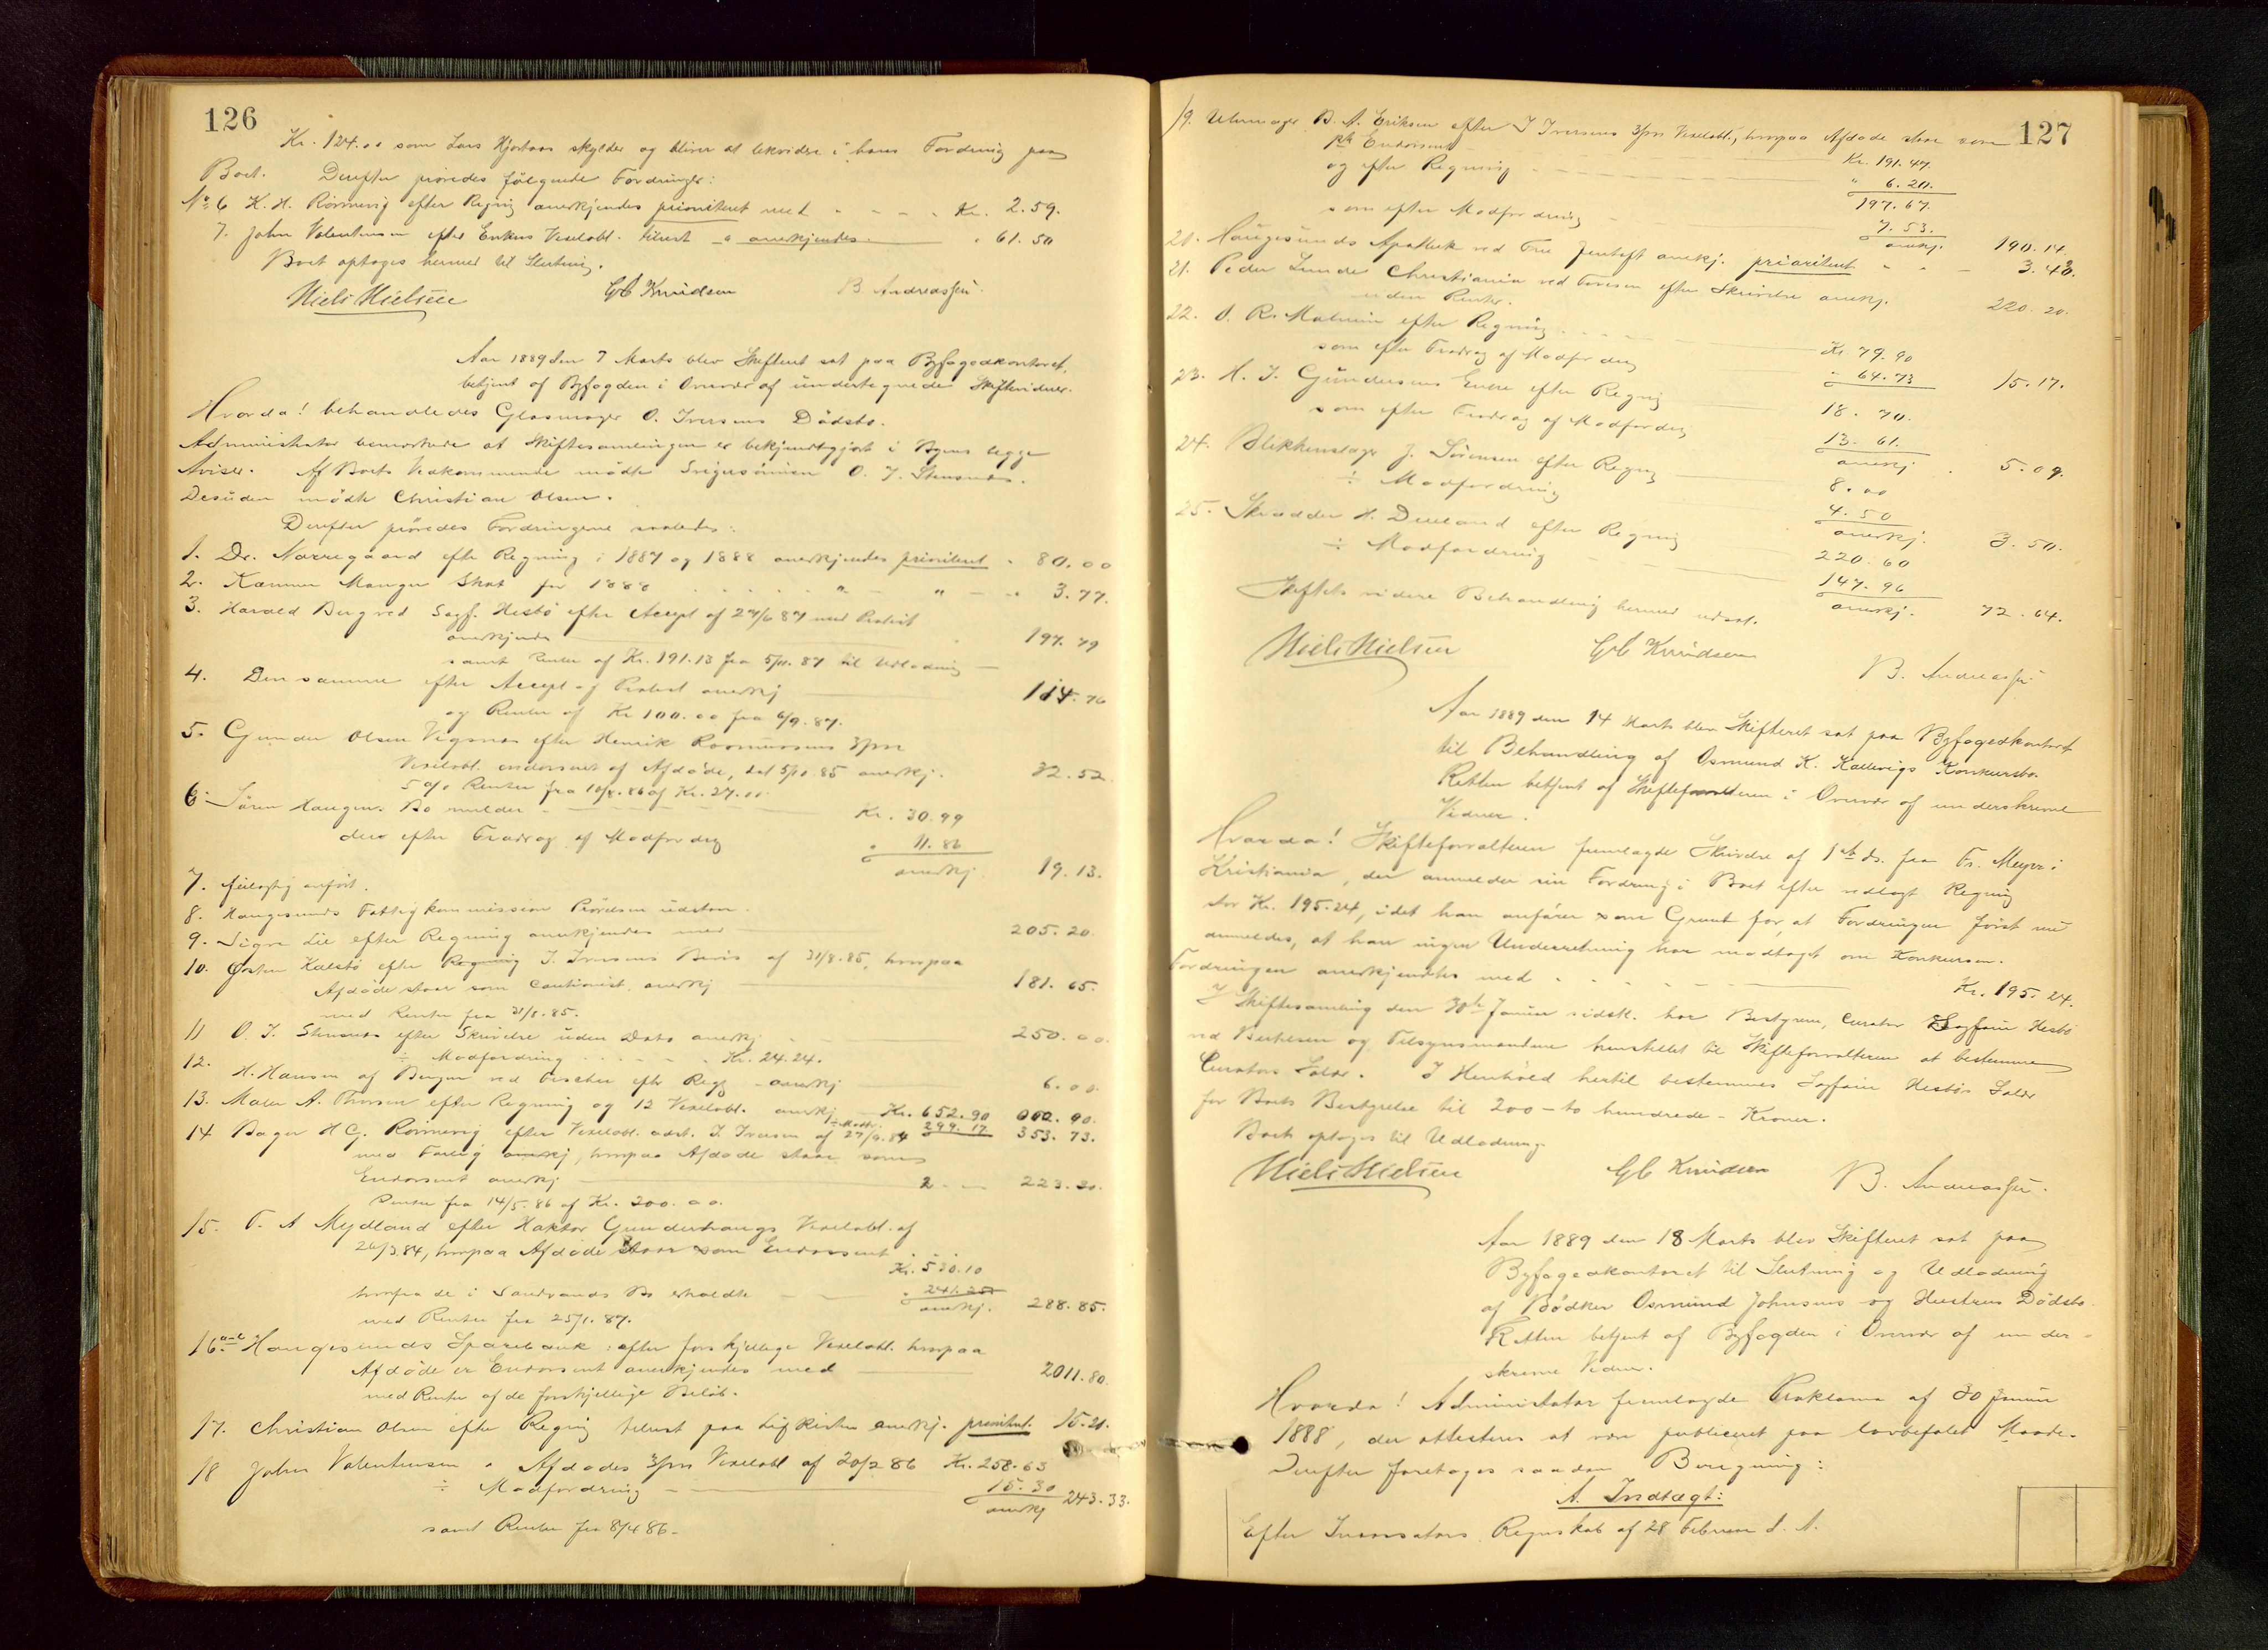 126
Kr. 124.00 som Lars Hjortaas skylder og bliver at likvidere i hans Fordring paa
Boet. Derefter prøvedes følgende Fordringer:
No 6 K. H. Rönnevig efter Regng anerkjendes prioriteret med - - - - Kr. 2.59.
7. John Valentinsen efter Enkens Vexelobl. anerkjendes. " 61.50
Boet optoges hermed til Slutning.
Niels Nielsen GC Knudsen B. Andreassen
Aar 1889 den 7 Marts blev Skifteret sat paa Byfogedkontoret,
betjent af Byfogden i Overvær af undertegnede Skiftevidner.
Hvorda! behandledes Glasmager O. Iversens Dödsbo.
Administrator bemærkede at Skiftesamlingen er bekjendtgjort i Byens begge
Aviser. Af Boets Vedkommende mødte Svigersönnen O. J. Stensnæs.
Desuden mødte Christian Olsen.
Derefter prövedes Fordringerne saaledes:
1. Dr. Nørregaard efter Regning i 1887 og 1888 anerkjendes prioriteret - 80.00
2. Kæmner Manger Skat for 1888 . . . . . " - " - - 3.77.
3. Harald Berg ved Sagf. Hesbö efter Accept af 27/6 87 med Protest
anerkjendes 197.79
samt Renter af Kr. 191.13 fra 5/11.87 til Udlodning
4. Den samme efter Accept og Protest anerkj 114.76
og Renter af Kr 100.00 fra 6/9.87.
5. Gunder Olsen Vigsnæs efter Henrik Rasmussens 3/m
Vexelobl. endosseret af Afdøde, dat 5/10.85 anerkj. 32.52.
5 o/o Renter fra 10/8.86 af Kr. 27.00
6. Sören Haugens Bo melder - Kr. 30.99
der efter Fradrag af Modfordrg " 11.86
anerkj. 19.13.
7. feilagtig anfört.
8. Haugesunds Fattigkommission Prövelsen udstaar.
9. Sigva Lie efter Regning anerkjendes med 205.20.
10. Östen Kalstö efter Regning I. Iversens Bevis af 31/8.85, hvorpaa
Afdøde staar som Cautionist anerkj 181.65.
med Renter fra 31/8.85.
11 O. J. Stensnæs efter Skrivelse uden Dato anerkj 250.00.
÷ Modfordring . . . . . Kr. 24.24.
12. H. Hansen af Bergen ved Fischer eftr Regg - anerkj 6.00.
13. Maler A. Thorsen efter Regning og 12 Vexelobl. anerkj - Kr. 652.90
÷ Modfr. 299.17 353.73.
14 Bager H G. Rönnevig efter Vexelobl. udst. I. Iversen af 27/9.84
med Forlig anerkj, hvorpaa Afdøde staar som
Endossent anerkj 223.20.
Renter fra 14/5.86 af Kr. 200.00.
15. T. A Mydland efter Haktor Gunderhaugs Vexelobl. af
26/3.84, hvorpaa Afdöde staar som Endossent . . .
Kr. 530.10
hvorfra de i Sandvands Bo erholdte - " 241.25
anerkj. 288.85.
med Renter fra 25/1.87.
16 a-e Haugesunds Sparebank: efter forskjellige Vexelobl. hvorpaa
Afdøde er Endossent anerkjendes med 2011.80.
med Renter af de forskjellige Belöb.
17. Christian Olsen efter Regng paa Ligkisten anerkj. prioritet. 15.20.
18 John Valentinsen " Afdødes 3/m Vexelobl af 20/2 86 Kr. 258.63
÷ Modfordring 15.30
anerkj 243.33.
samt Renter fra 8/4 86.
127
19. Uhrmager B. A. Eriksen efter I Iversens 3/m Vexelobl., hvorpaa Afdøde staar som
Endossent Kr. 191.47.
og efter Regning " 6.20.
197.67.
som efter Modfordring 7.53.
anerkj. 190.14.
20. Haugesunds Apothek ved Fru Jentoft anerkj. prioriteret " - - 3.48.
21. Peder Lunde Christiania ved Foresen efter Skrivelse anerkj. 220.20.
uden Renter.
22. O. R. Malmin efter Regning . . . Kr. 79.90
som efter Fradrag af Modfordrg " 64.73 15.17.
23. H. J. Gundersens Enke efter Regng 18.70.
som efter Fradrag af Modfordrg 13.61.
anerkj . 5.09.
24. Blikkenslager J. Sörensen efter Regng 8.00
÷ Modfordring 4.50
anerkj. 3.50.
25. Skrædder H. Dueland efter Regning 220.60
÷ Modfordring 147.96
anerkj. 72.64.
Skiftets videre Behandling hermed udsat.
Niels Nielsen GC Knudsen B. Andreassen
Aar 1889 den 14 Marts blev Skifteret sat paa Byfogedkontoret
til Behandling af Osmund K. Kallevigs Konkursbo.
Retten betjent af Skifteforvalteren i Overvær af underskrevne
Vidner.
Hvorda! Skifteforvalteren fremlagde Skrivelse af 1ste ds. fra Fr. Meyer i
Kristiania, der anmelder sin Fordring i Boet efter vedlagt Regning
stor Kr. 195.24, idet han anfører som Grund for, at Fordringen först nu
anmeldes, at han ingen Underretning har modtaget om Konkursen.
Fordringen anerkjendtes med . . . . . Kr. 195.24.
I Skiftesamling den 30te Januar sidstl. har Bestyreren, Curator Sagförer Hesbö
ved Berthesen og Tilsynsmændene henstillet til Skifteforvalteren at bestemme
Curators Salær. I Henhold hertil bestemmes Sagförer Hesbös Salær
for Boets Bestyrelse til 200 - to hundrede - Kroner.
Boet optoges til Udlodning.
Niels Nielsen GC Knudsen B. Andreassen.
Aar 1889 den 18 Marts blev Skifteret sat paa
Byfogedkontoret til Slutning og Udlodning
af Bödker Osmund Johnsens og Hustrus Dödsbo.
Retten betjent af Byfogden i Overvær af under-
skrevne Vidner.
Hvorda! Administrator fremlagde Proklama af 30 Januar
1888, der attesteres at være publiceret paa lovbefalet Maade.
Derefter foretoges saadan Beregning:
A. Indtægt:
Efter Incassators Regnskab af 28 Februar d. A.